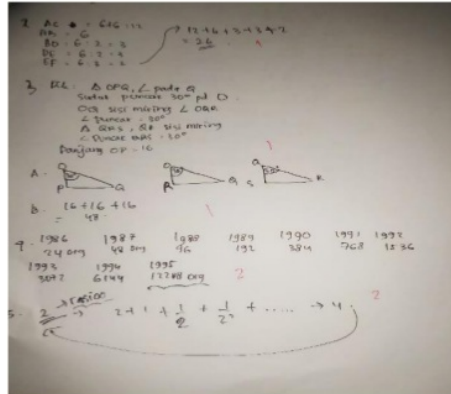 2. AC = 6+6 = 12
AB = 6
BD = 6 : 2 = 3
DE = 6 : 2 = 3
EF = 6 : 3 = 2
12 + 6 + 3 + 3 + 2
= 26
1
3. Δ OPQ, ∠ pada Q
Sudut puncak 30° pd O
OQ sisi miring ∠ OQR
∠ puncak = 30°
Δ QRS, QR sisi miring
∠ puncak QRS = 30°
Panjang OP = 16
1
A.
O
P
Q
O
R
Q
Q
S
R
B. 16 + 16 + 16
= 48
1
4. 1986 1987 1988 1989 1990 1991 1992
24 org 48 org 96 192 384 768 1536
1993 1994 1995
3072 6144 12288 org
2
5. 2 → rasio → 2 + 1 + 1/2 + 1/2² + ..... → 4.
2